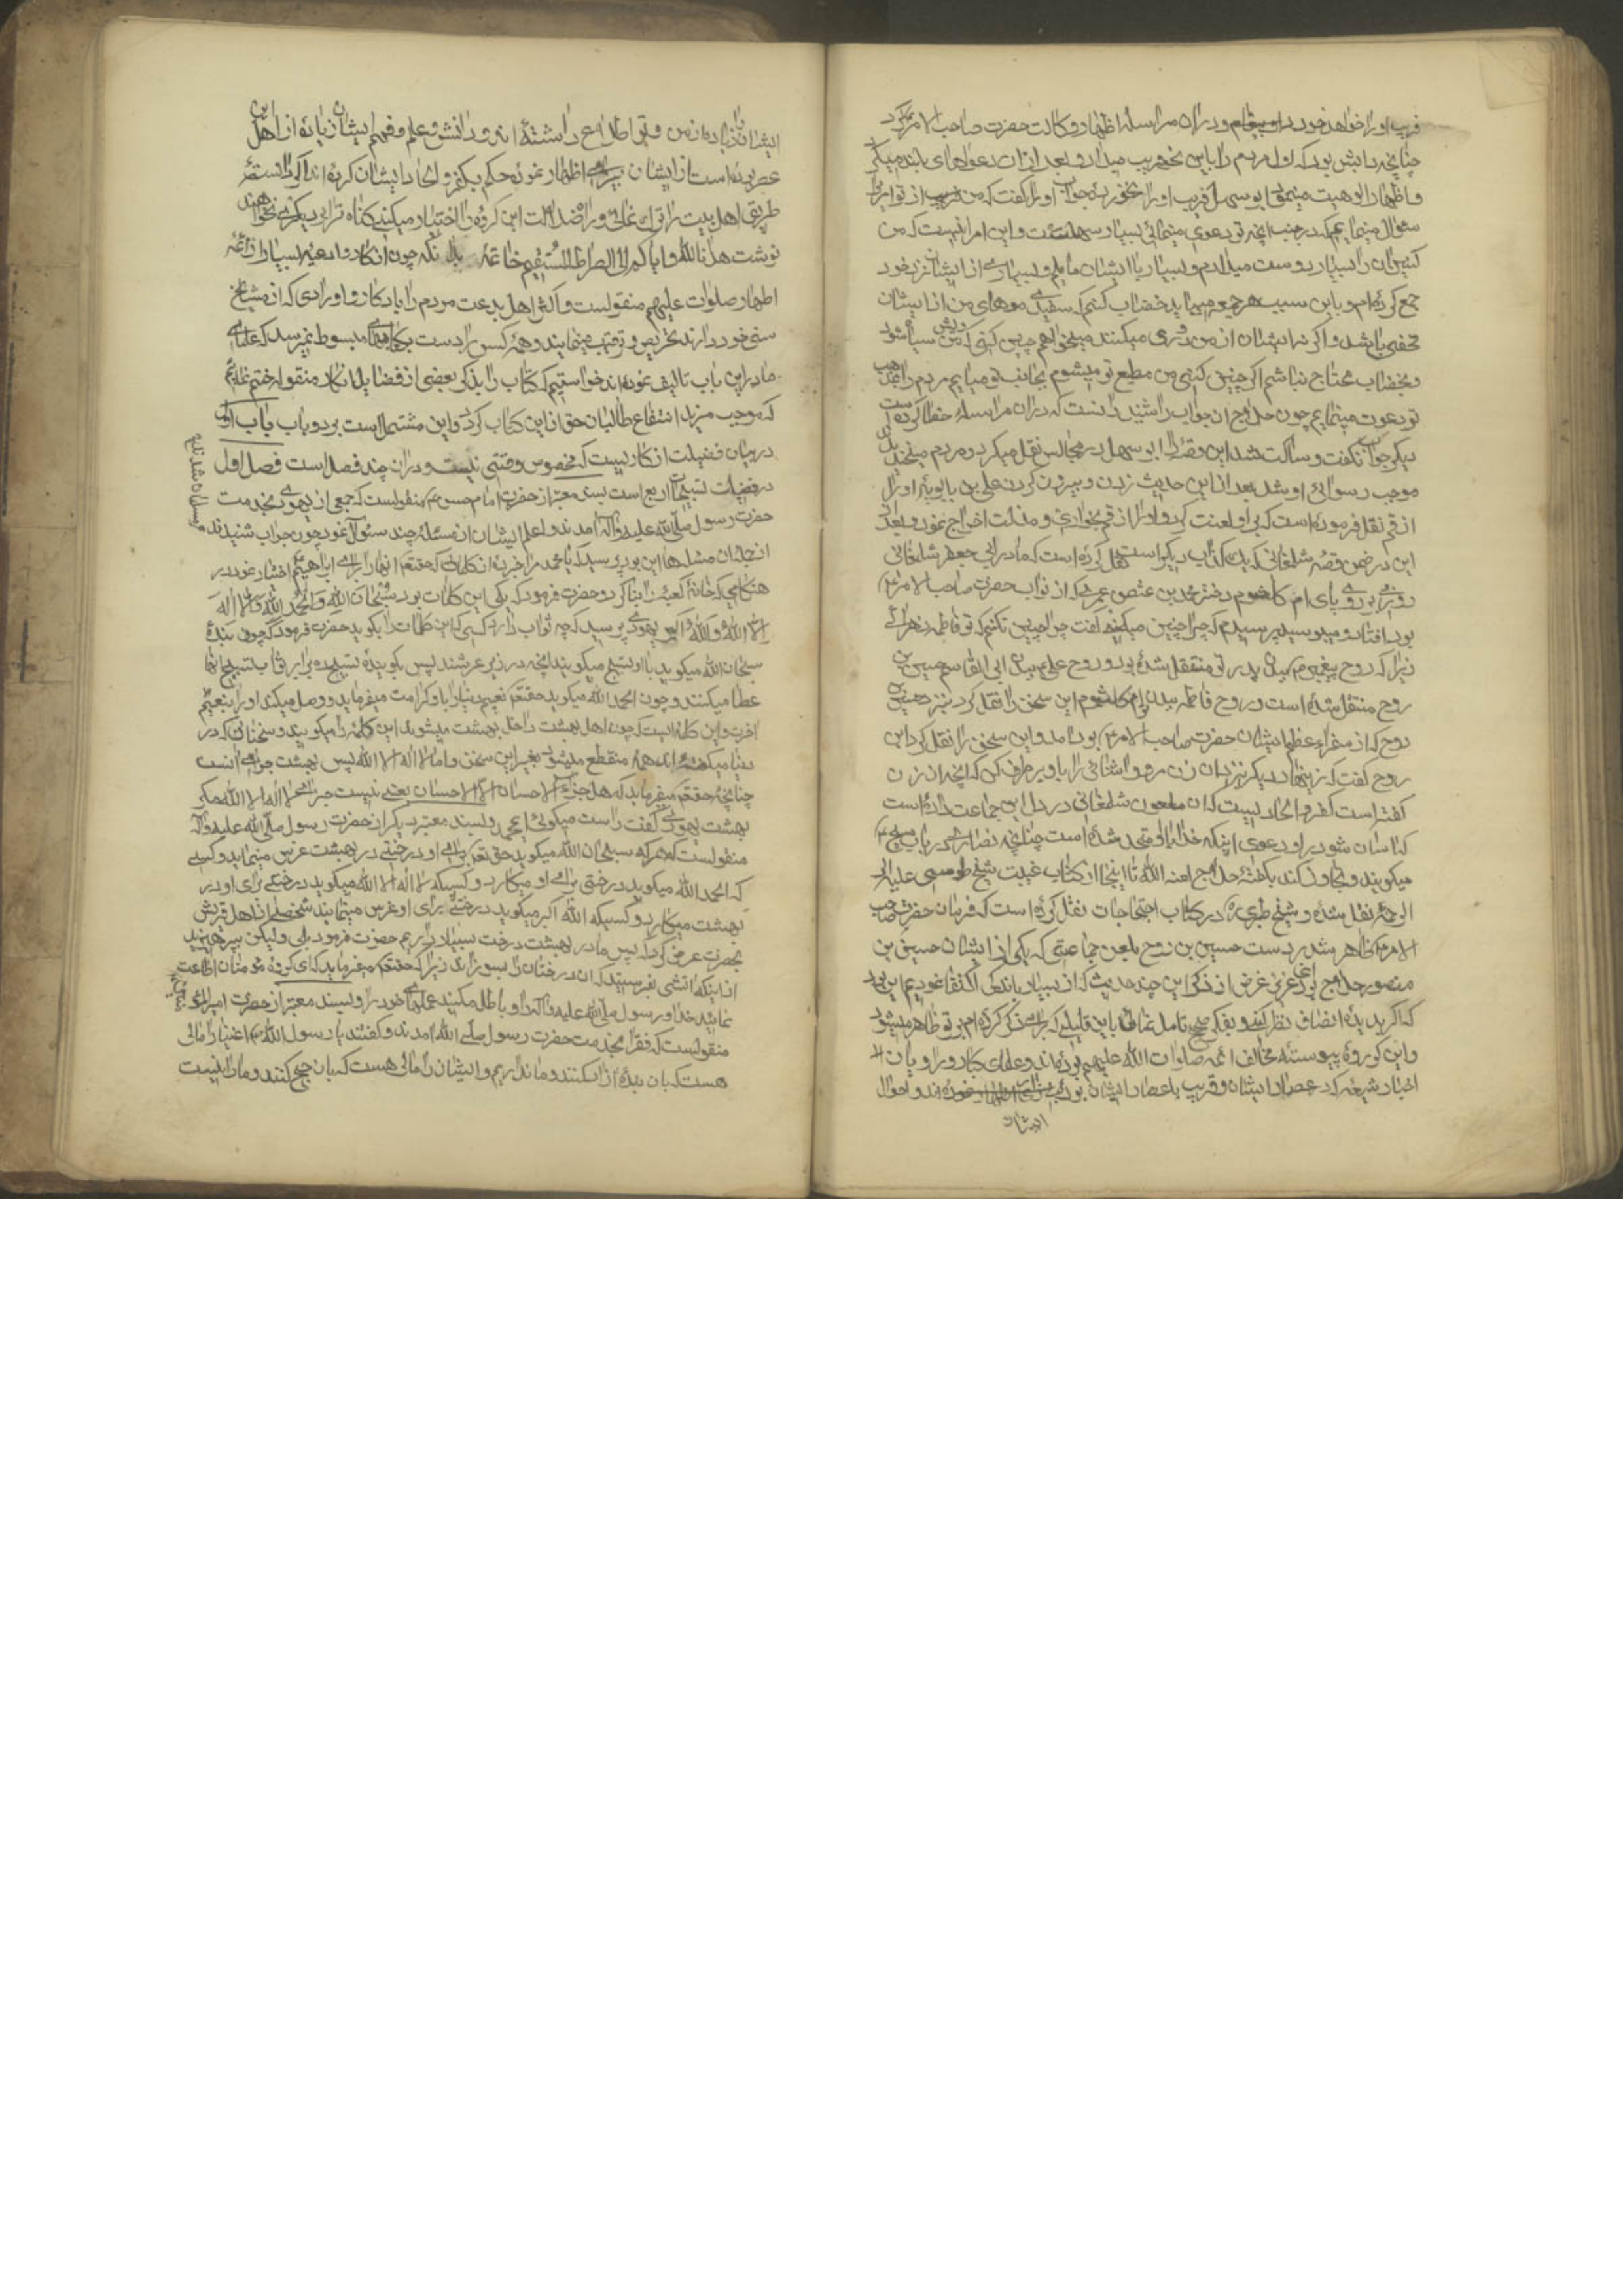 فریب او را خواهد خورد او پیغام و در ان مراسله اظهار وکالت حضرت صاحب الامر کرد
چنانچه دابش بود که اول مردم را باین نحو فریب میداد و بعد از ان دعواهای بلند میکرد
و اظهار الوهیت مینمود ابو سهل فریب او را نخورده جواب او را گفت که من از تو امری
سؤال مینمایم که در جنب انچه تو دعوی مینمائی بسیار سهلست و این امر انیست که من
کنیزان را بسیار دوست میدارم و بسیار با ایشان مایلم و بسیاری از ایشان نزد خود
جمع کرده ام و باین سبب هر جمعه میباید خضاب کنم که سفیدی موهای من از ایشان
مخفی باشد و اگر نه ایشان از من دوری میکنند میخواهم چنین کنی که ریش من سیاه شود
و بخضاب محتاج نباشم اگر چنین کنی من مطیع تو میشوم بجانب تو میایم مردم را بمذهب
تو دعوت مینمایم چون حلاج ان جواب را شنید دانست که در ان مراسله خطا کرده است
دیگر جواب نگفت و ساکت شد این وقه را ابو سهل در مجالس نقل میکرد و مردم میخندیدند
موجب رسوائی او شد بعد از این حدیث زدن و بیرون کردن علی بن بابویه او را
از قم نقل فرموده است که بر او لعنت کرد و او را از قم بخواری و مذلت اخراج نمود و بعد از
این در ضمن قصه شلمغانی که یک کذاب دیگر است نقل کرده است که مادر ابی جعفر شلمغانی
روزی بر روی پای ام کلثوم دختر محمد بن عثمن عمری که از نواب حضرت صاحب الامر ع
بود افتاد و میبوسید پرسیدم که چرا چنین میکنی گفت چرا چنین نکنم که تو فاطمه زهرائی
زیرا که روح پیغمبر ص ببدن پدر تو منتقل شده بود و روح علی ببدن ابی القاسم حسین بن
روح منتقل شده است و روح فاطمه ببدن تو ام کلثوم این سخن را نقل کرد بنزد حسین بن
روح که از سفراء عظیم ایشان حضرت صاحب الامر ع بود امد و این سخن را نقل کرد ابن
روح گفت که زینهار دیگر نزد ان زن مرو و اشنائی را با او برطرف کن که انچه ان زن
گفته است کفر و الحادیست که ان ملعون شلمغانی در دل این جماعت داده است
که اسان شود بر او دعوی اینکه خدا با او متحد شده است چنانچه نصاری در باب مسیح ع
میگویند و تجاوز کند بگفته حلاج لعنه الله تا اینجا از کتاب غیبت شیخ طوسی علیه
الرحمه نقل شده و شیخ طبرسی ره در کتاب احتجاجات نقل کرده است که فرمان حضرت صاحب
الامر ع ظاهر شد بر دست حسین بن روح بلعن جماعتی که یکی از ایشان حسین بن
منصور حلاج بود ای عزیز غرض از ذکر این چند حدیث که از بسیار باندکی اکتفا نمودیم این بود
که اگر بدیده انصاف نظر کنی و بفکر صحیح تامل نمائی باین قلیلی که برای ذکر کرده ام بر تو ظاهر میشود
و این گروه پیوسته مخالف ائمه صلوات الله علیهم بوده اند و علمای کبار و راویان
اخیار شیعه که در عصر ایشان و قریب باعصار ایشان بوده اند و احوال
ایشان
ایشان را زیاده از من و تو اطلاع داشته اند و دانش و علم و فهم ایشان زیاده از اهل این
عصر بوده است از ایشان بیزاری اظهار نموده حکم بکفر و الحاد ایشان کرده اند اگر دانسته
طریق اهل بیت را ترک نمائی و راه ضلالت این گروه را اختیار میکنی گناه ترا بر دیگری نخواهند
نوشت هدانا الله و ایاکم الی الصراط المستقیم خاتمه بدانکه چون اذکار و ادعیه بسیار از ائمه
اطهار صلوات علیهم منقولست و اکثر اهل بدعت مردم را باذکار و اورادی که از مشایخ
سنی خود دارند تحریص و ترغیب مینمایند و همه کس را دست بکتابهای مبسوط نمیرسد که علمای
ما در این باب تالیف نموده اند خواستیم که کتاب را بذکر بعضی از فضایل اذکار منقوله ختم نمائیم
که موجب مزید انتفاع طالبان حق از این کتاب گردد و این مشتملست بر دو باب باب اول
در بیان فضیلت اذکاریست که مخصوص وقتی نیست و در ان چند فصل است فصل اول
در فضیلت تسبیحات اربع است بسند معتبر از حضرت امام حسن ع منقولست که جمعی از یهود بخدمت
حضرت رسول صلی الله علیه و اله امدند و اعلم ایشان از مسئله چند سئوال نمود چون جواب شنیدند
مسلمان شدند
از جمله ان مسئلها این بود پرسید که یا محمد مرا خبر ده از کلماتی که حقتعالی انها را برای ابراهیم ع اختیار نمود در
هنگامی که خانه کعبه را بنا کرد حضرت فرمود که بلی این کلمات بود سُبْحٰانَ اللهِ وَ الْحَمْدُ لِلهِ وَ لاٰ اِلهَ
اِلَّا اللهُ وَ اللهُ اکبر یهودی پرسید که چه ثواب دارد کسی که این کلمات را بگوید حضرت فرمود که چون بنده
سبحان الله میگوید با او تسبیح میگویند انچه در زیر عرشند پس گوینده تسبیح ده برابر ثواب تسبیح انها
عطا میکنند و چون الحمد لله میگوید حقتعالی نعیم دنیا را باو کرامت میفرماید و وصل میکند او را بنعیم
اخرت و این کلمه ایست که چون اهل بهشت داخل بهشت میشوند این کلمه را میگویند و سخنانی که در
دنیا میگفته اند همه منقطع میشود بغیر این سخن و اما لا اله الا الله پس بهشت جزای انست
چنانچه حقتعالی میفرماید که هل جزاء الاحسان الا الاحسان یعنی نیست جزای لا اله الا الله مگر
بهشت یهودی گفت راست میگوئی ای محمد و بسند معتبر دیگر از حضرت رسول صلی الله علیه و اله
منقولست که هر که سبحان الله میگوید حق تعالی برای او درختی در بهشت غرس مینماید و کسی
که الحمد لله میگوید درختی برای او میکارد و کسیکه لا اله الا الله میگوید درختی برای او در
بهشت میکارد و کسیکه الله اکبر میگوید درختی برای او غرس مینماید شخصی از اهل قریش
بحضرت عرض کرد که پس ما در بهشت درخت بسیار داریم حضرت فرمود بلی ولیکن بپرهیزید
از اینکه اتشی بفرستید که ان درختان را بسوزاند زیرا که حقتعالی میفرماید که ای گروه مومنان اطاعت
نمائید خدا و رسول صلی الله علیه و اله را و باطل مکنید عملهای خود را و بسند معتبر از حضرت امیر المؤمنین ع
منقولست که فقرا بخدمت حضرت رسول صلی الله امدند و گفتند یا رسول الله ص اغنیا را مالی
هست که بان بنده ازاد میکنند و ما نداریم و ایشان را مالی هست که بان حج کنند و ما را نیست